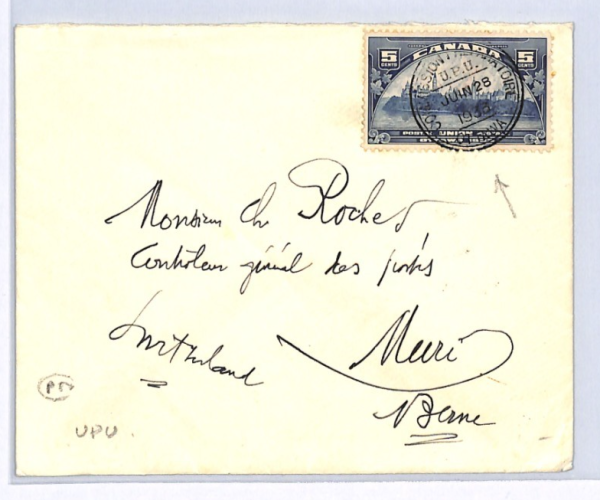 5 CANADA 5
CENTS CENTS
POSTAL UNION
OTTAWA
U.P.U.
JUIN 28
OTTAWA
Monsieur Ch Roches
Contrôleur général des postes
Switzerland
Muri
Berne
UPU